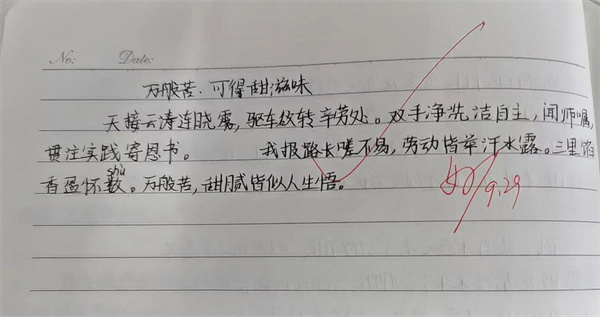 No:          Date:
万般苦·可得甜滋味
天接云涛连晓雾,驱车故转辛劳处。双手净洗洁自主,闻师嘱,
贯注实践寄恩书。 我报路长嗟不易,劳动皆举汗水露。三里馅
shǔ
香盈怀数。万般苦,甜腻皆似人生悟。
好
9.29